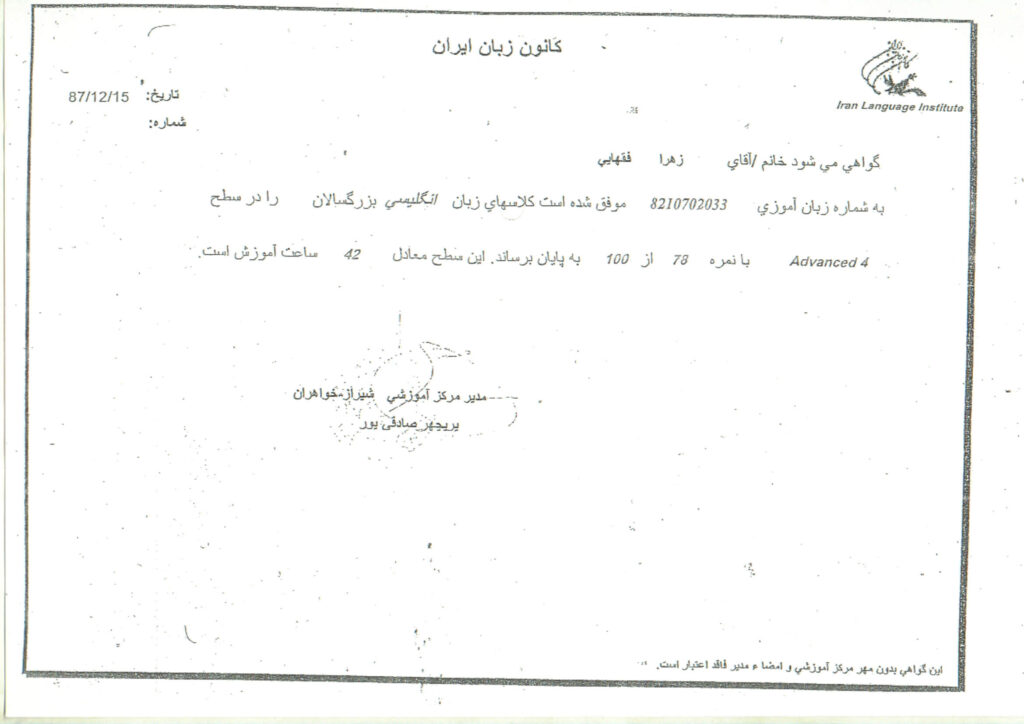 کانون زبان ایران
Iran Language Institute
تاریخ: 87/12/15
شماره:
گواهي مي شود خانم /آقاي زهرا فقهايي
به شماره زبان آموزي 8210702033 موفق شده است کلاسهاي زبان انگليسي بزرگسالان را در سطح
Advanced 4 با نمره 78 از 100 به پايان برساند. اين سطح معادل 42 ساعت آموزش است.
مدير مرکز آموزشي شيراز-خواهران
پريچهر صادقی پور
اين گواهي بدون مهر مرکز آموزشي و امضاء مدير فاقد اعتبار است.